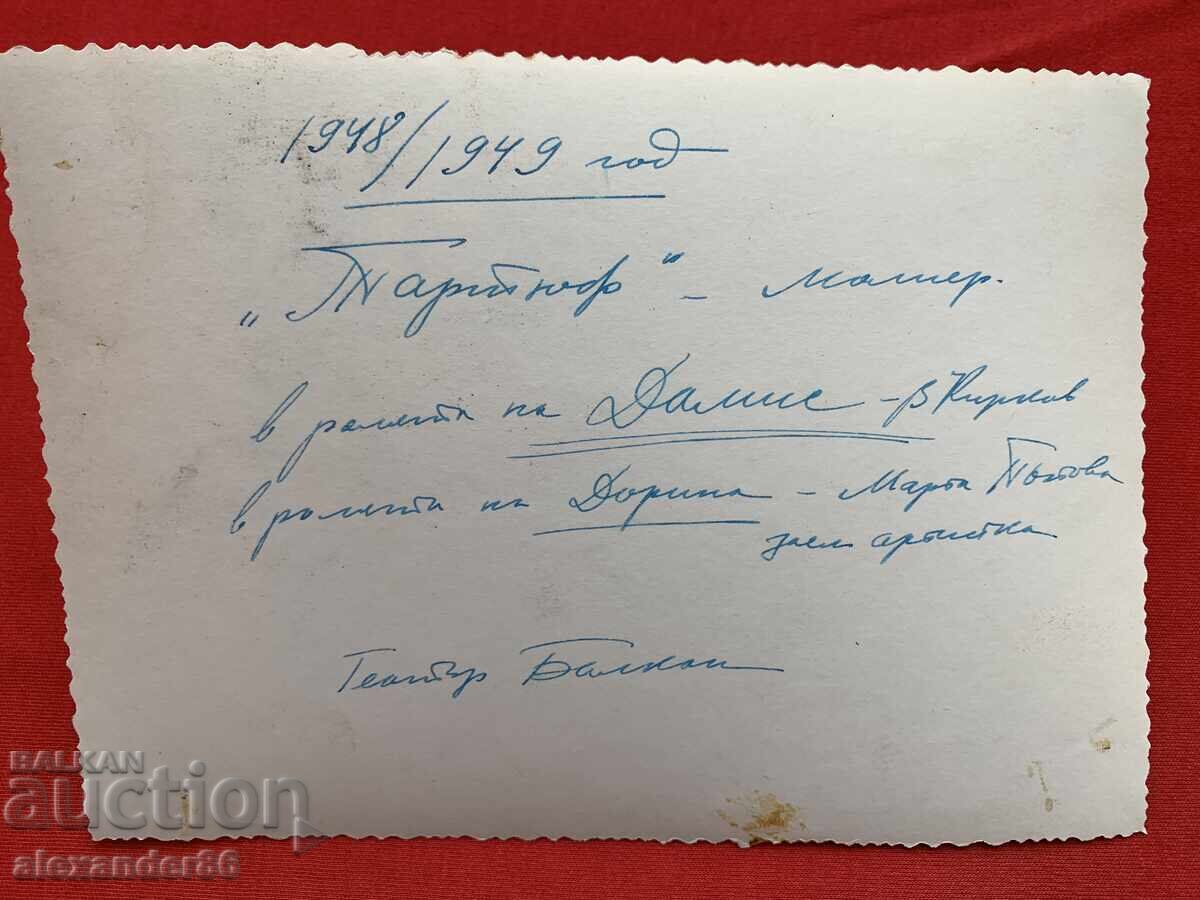 1948/1949 год
„Тартюф" - Молиер.
в ролята на Дамис - В Кирков
в ролята на Дорина - Марта Попова
засл артистка
Театър Балкан
BALKAN
auction
alexander86